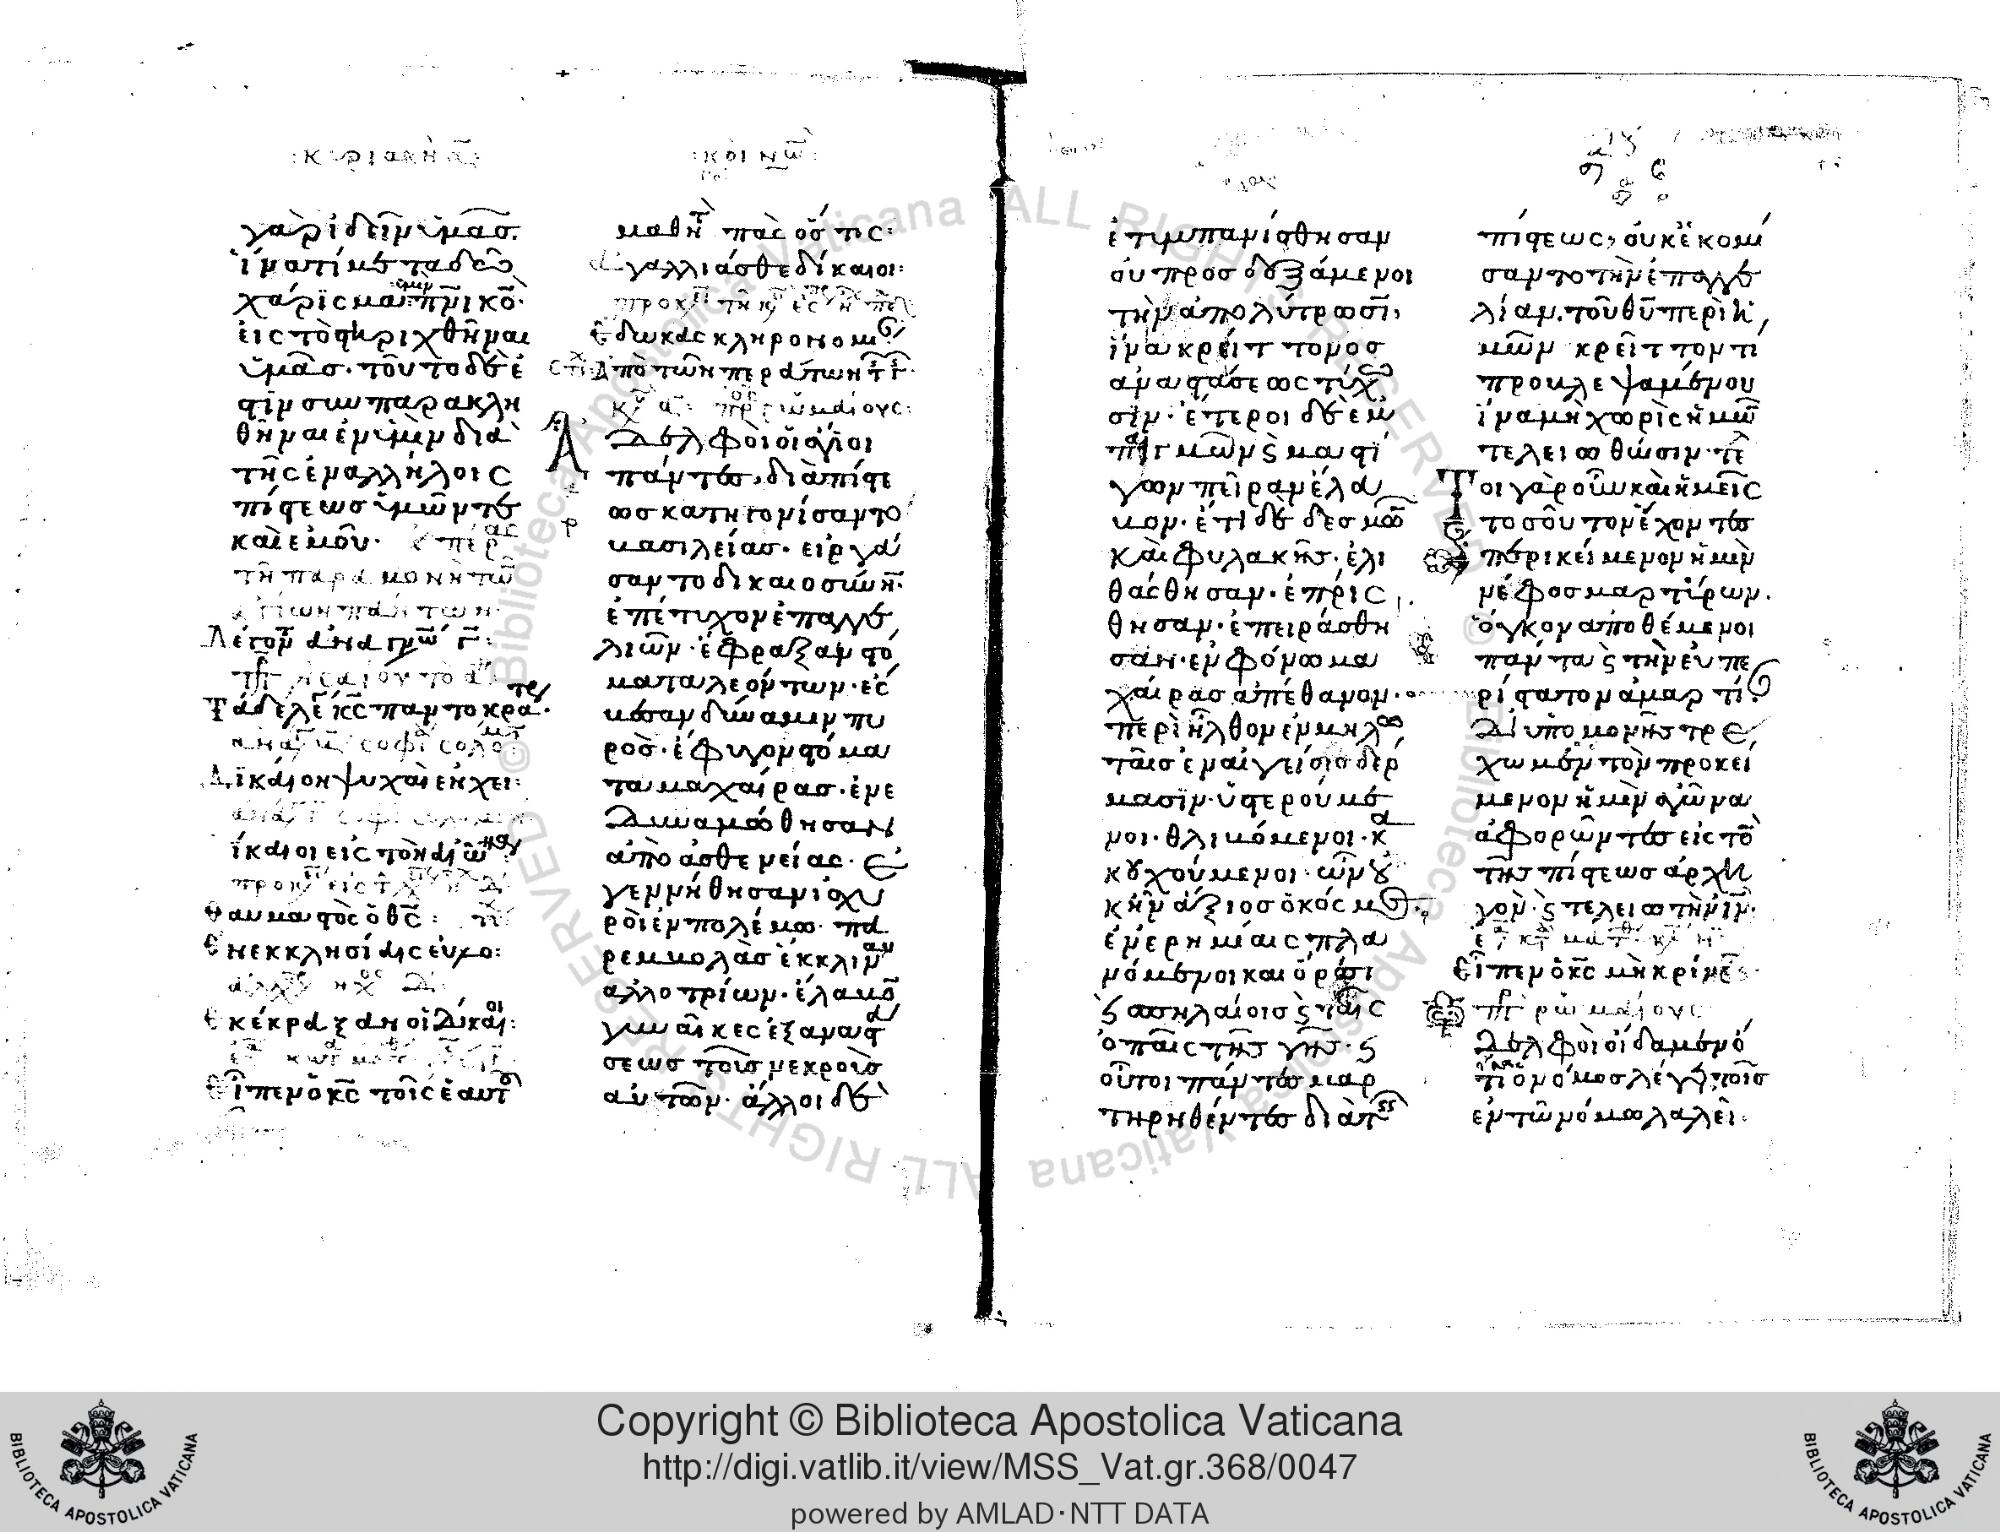 : κυριακὴ α :
γὰρ ἰδεῖν ὑμᾶσ.
ἵνα τί μετα δῶ
χάρισμα ὑμῖν πνικὸ·
εἰς τὸ στηριχθῆναι
ὑμᾶσ· τοῦτο δὲ ἐ
στὶν συμπαρακλη
θῆναι ἐν ὑμῖν διὰ
τῆς ἐν ἀλλήλοις
πίστεως ὑμῶν τε
καὶ ἐμοῦ· ἑσπέρας
τῆ παραμονὴ τῶ
ἁγίων πάντων
Λέγομ ἀναγνώ γ :
Τάδε λέ κς παντοκρά.
Δικαίον ψυχαὶ ἐν χει:
ίκαιοι εἰς τὸν αἰῶ
θαυμαστὸς ὁ θς :
Ἐν ἐκκλησίαις εὐλο:
Ἐκέκραξαν οἱ δίκαι:
Εἶπεν ὁ κς τοῖς ἑαυτ
: κοινω :
μαθη πᾶς ὅσ τις :
ἀγαλλιάσθε δίκαιοι :
Ἔδωκας κληρονομ
στι Ἀπὸ τῶν περάτων τ γ
Ἀδελφοὶ οἱ ἅγιοι
πάντες, διὰ πίστε
ως κατηγονίσαντο
βασιλείας· εἰργά
σαντο δικαιοσύνη·
ἐπέτυχον ἐπαγγε
λιῶν· ἔφραξαν στό
ματα λεόντων· ἐσ
βεσαν δύναμιν πυ
ρός· ἔφυγον στόμα
τα μαχαίρας· ἐνε
δυναμώθησαν
ἀπὸ ἀσθενείας· ἐ
γεννήθησαν ἰσχυ
ροὶ ἐν πολέμω· πα
ρεμβολὰς ἔκκλιναν
ἀλλοτρίων· ἔλαβο
γυναῖκες ἐξ ἀναστ
σεως τοὺς νεκροὺς
αὐτῶν· ἄλλοι δὲ
ἐτυμπανίσθησαν
οὐ προσδεξάμενοι
τὴν ἀπολύτρωσι,
ἵνα κρείττονος
ἀναστάσεως τύχω
σιν· ἕτεροι δὲ ἐμ
παιγμῶν ϛ μαστί
γων πεῖραν ἔλα
βον· ἔτι δὲ δεσμῶ
καὶ φυλακῆς· ἐλι
θάσθησαν· ἐπρίς
θησαν· ἐπειράσθη
σαν· ἐν φόνω μα
χαίρας ἀπέθανον·
περιῆλθον ἐν μηλω
ταῖς ἐν αἰγείοις δέρ
μασιν· ὑστερούμε
νοι· θλιβόμενοι· κα
κουχούμενοι· ὧν οὐ
κ ἦν ἄξιος ὁ κόσμ
ἐν ἐρημίαις πλα
νόμενοι καὶ ὄρεσι
ϛ σπηλαίοις ϛ ταῖς
ὀπαῖς τῆς γῆς· ϛ
οὗτοι πάντες μαρ
τηρηθέντες διὰ τ
πίστεως, οὐκ ἐκομί
σαντο τὴν ἐπαγγε
λίαν. τοῦ θυ περὶ ἡ
μῶν κρεῖττον τι
προβλεψαμένου
ἵνα μὴ χωρὶς ἡμῶ
τελειωθώσιν· τε
Τοιγὰρ οὖν καὶ ἡμεῖς
τοσοῦτον ἔχοντες
περικείμενον ἡμὶν
νέφος μαρτύρων.
ὄγκον ἀποθέμενοι
πάντα ϛ τὴν εὐπε
ρίστατον ἁμαρτί
δι' ὑπομονῆς τρέ
χωμεν τὸν προκεί
μενον ἡμὶν ἀγῶνα
ἀφορῶντες εἰς τὸ
τῆς πίστεως ἀρχη
γὸν· ϛ τελειωτὴν ιν·
Εἶπεν ὁ κς μὴ κρίνε
πρ ρωμαίους
Ἀδελφοὶ οἴδαμεν ὅ
τι ὁ νόμος λέγει, τοῖς
ἐν τῶ νόμω λαλεῖ·
Copyright © Biblioteca Apostolica Vaticana
http://digi.vatlib.it/view/MSS_Vat.gr.368/0047
powered by AMLAD·NTT DATA
BIBLIOTECA APOSTOLICA VATICANA
BIBLIOTECA APOSTOLICA VATICANA